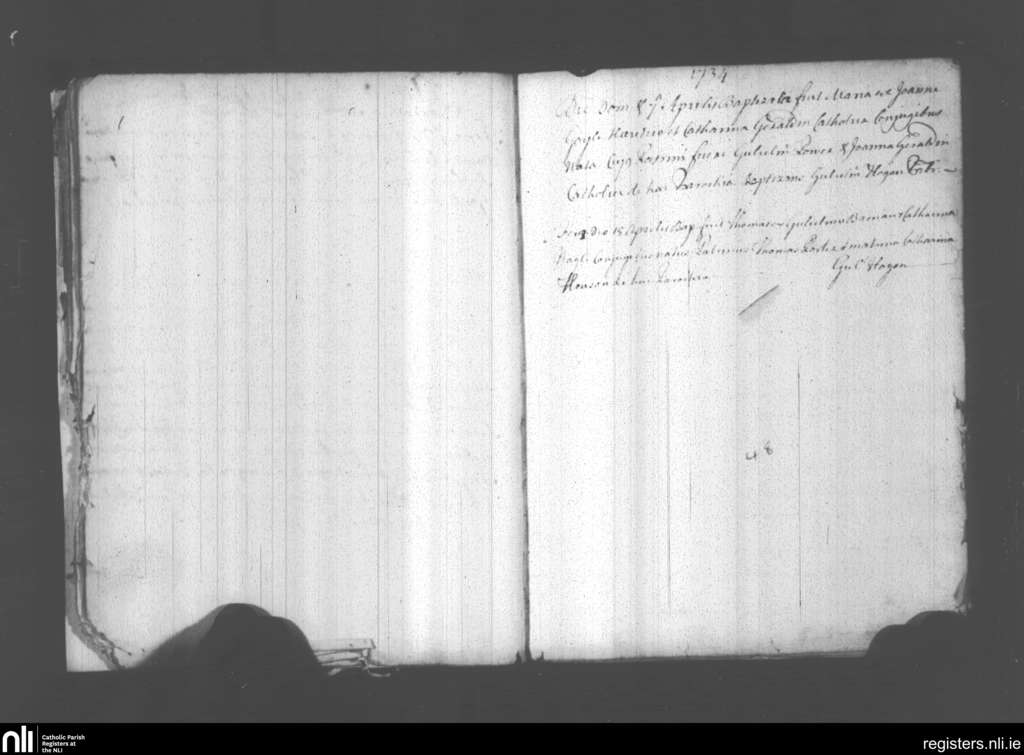 1734
Die Dom & 7 Aprilis Baptizata fuit Maria ex Joanne
Nagle et Catharina Geraldin Catholica Conjugibus
Nata Cujus fuere Gulielm Power & Joanna Geraldin
Catholici de hac Parochia Baptizans Gulielm Hogan
Die 15 Aprilis Bap fuit Thomas ex Gulielmo & Catharina
Nagle Conjugibus natus Patrinus Thomas matrina Catharina
de hac Parochia
Gul Hogan
48
nli
Catholic Parish
Registers at
the NLI
registers.nli.ie